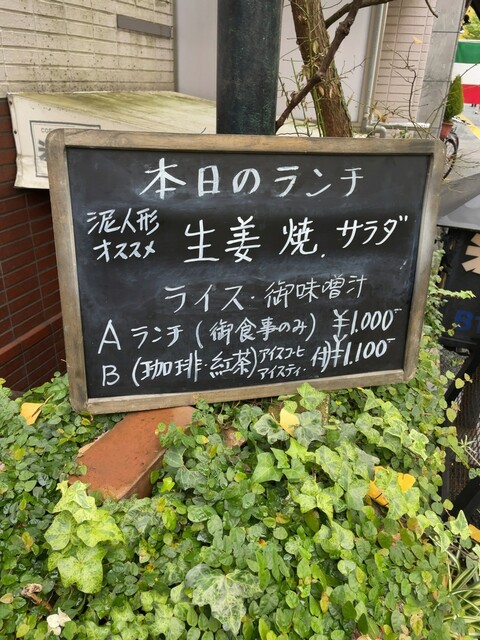 本日のランチ
泥人形
オススメ
生姜焼. サラダ
ライス・御味噌汁
A ランチ(御食事のみ) ¥1.000-
B (珈琲・紅茶) アイスコーヒ アイスティ・付 ¥1.100-